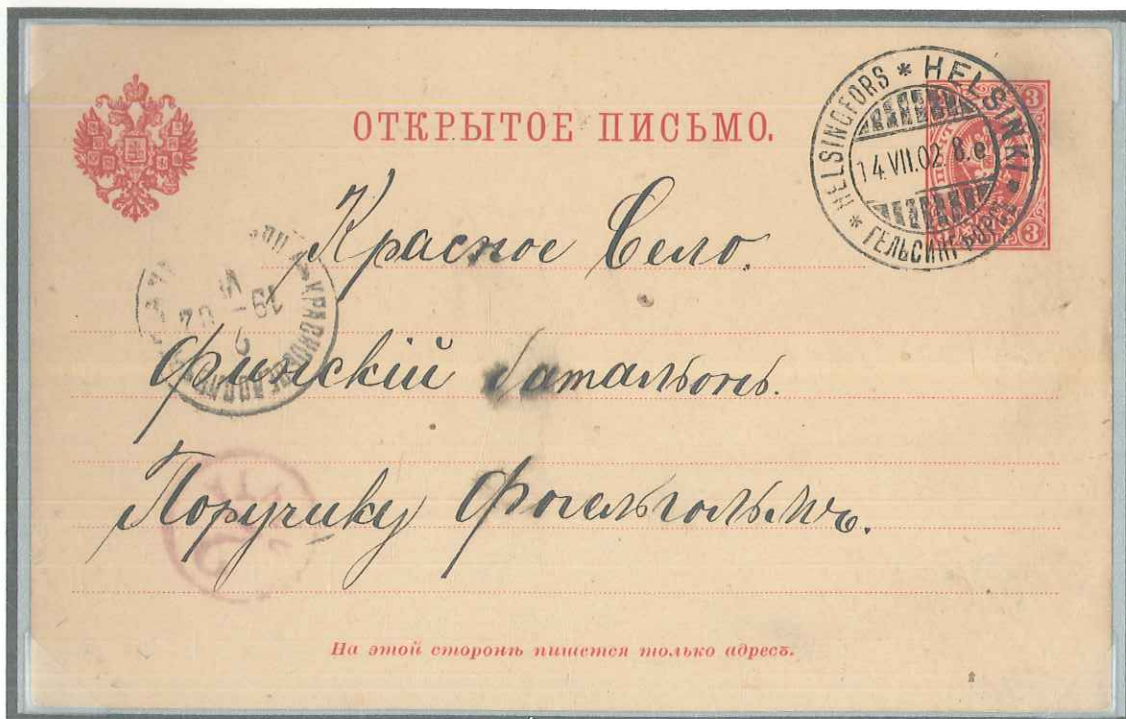 ОТКРЫТОЕ ПИСЬМО.
* HELSINGFORS * HELSINKI *
ГЕЛЬСИНГФОРСЪ
14.VII.02. 8.e
3
3
Красное Село.
Финскій баталіонъ.
Поручику Фогельгольмъ.
На этой сторонѣ пишется только адресъ.